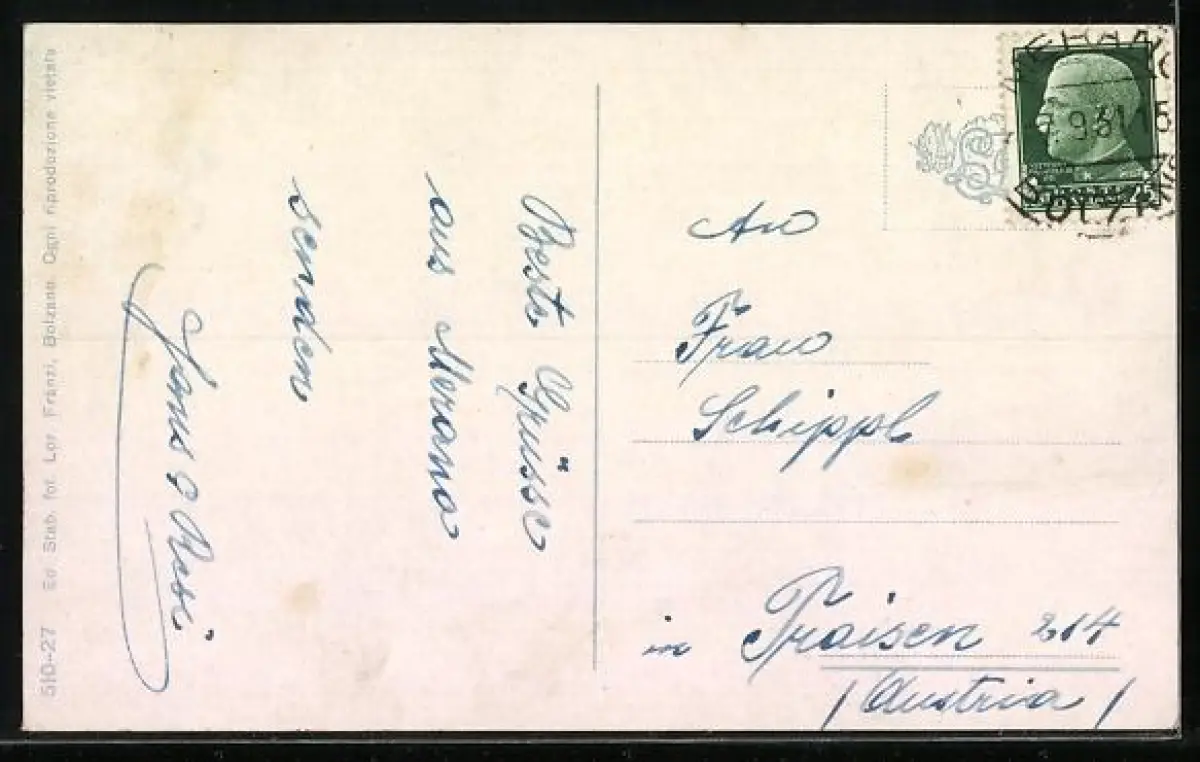 510-27 Ed. Stab. fot. Lor. Fränzl, Bolzano Ogni riproduzione vietata
Beste Grüsse
aus Merano
senden
MERANO
BOLZANO
An
Frau
Schippl
in Traisen 214
(Austria)